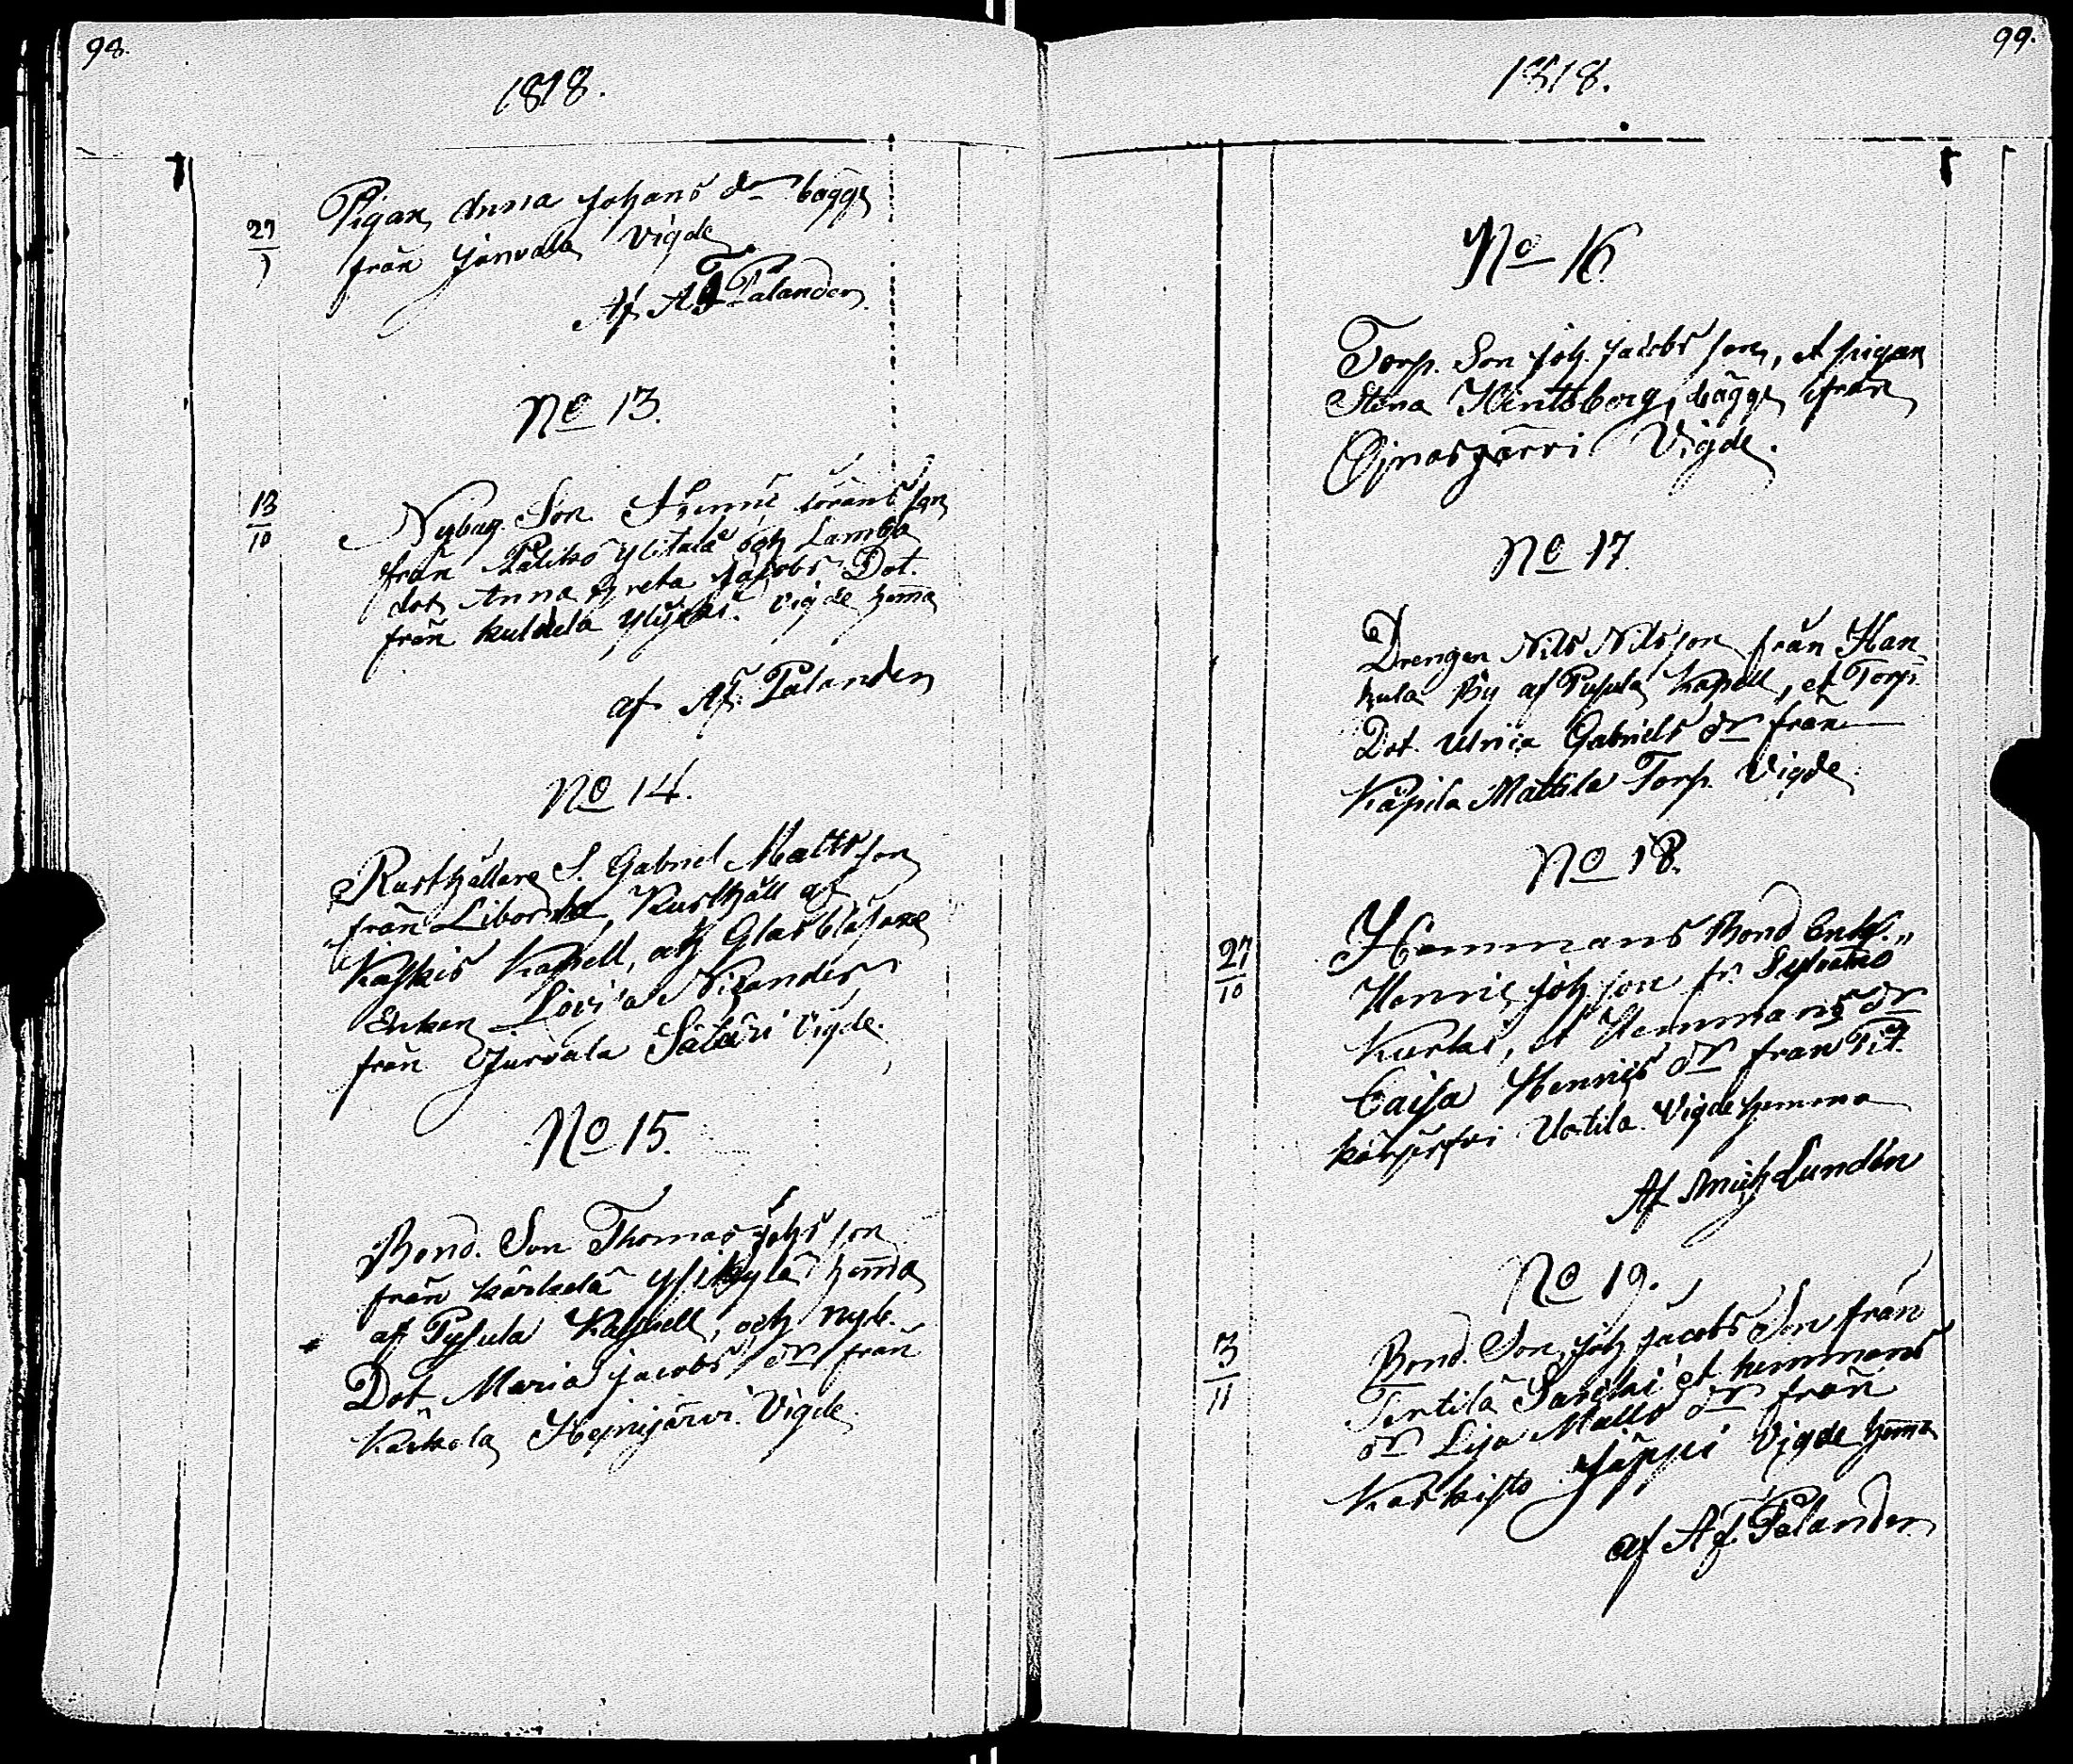 98.
1818.
27
7
Pigan Anna Johans dr bägge
från Jänvala Vigde
Af A F Palander
No 13.
13
10
Nybyg. Son Henric Görans son
från Paliko Ylitalå och Lambo
dot Anna Greta Jakobs Dot.
från Ylijoki. Vigde hema
af Af. Palander
No 14.
Rusthållare S. Gabriel Matts son
från Rusthåll af
Kapell, och Glasblåsare
Enkan Lovisa Nizander
från Jurvala Säteri Vigde.
No 15.
Bond. Son Thomas Johs son
från Kärkelä Ylikylä hema
af Pusula Kappell, och nyb.
Dot. Maria Jacobs dr från
Kärkelä Hejnijärvi Vigde
99.
1818.
No 16.
Torp. Son Joh. Jacobs son, et pigan
Stina Hintsberg, bägge ifrån
Ojmasjärvi Vigde.
No 17.
Drengen Nils Nilsson från Han
hula By af Pusula Kapell, et Torp.
Dot. Ulrica Gabriels dr från
Käpila Mattila Torp. Vigde
No 18.
27
10
Hemmans Bond Enk.
Henric Joh son fr.
Kurki, et Hemmans dr
Caisa Henrics dr från
Uotila Vigde hemma
Af Mich Lundén
No 19.
3
11
Bond. Son Joh Jacobs Son från
Pertilä et hemmans
dr Lisa Matts dr från
Karkisto Jäppi Vigde hema
af A f. Palander